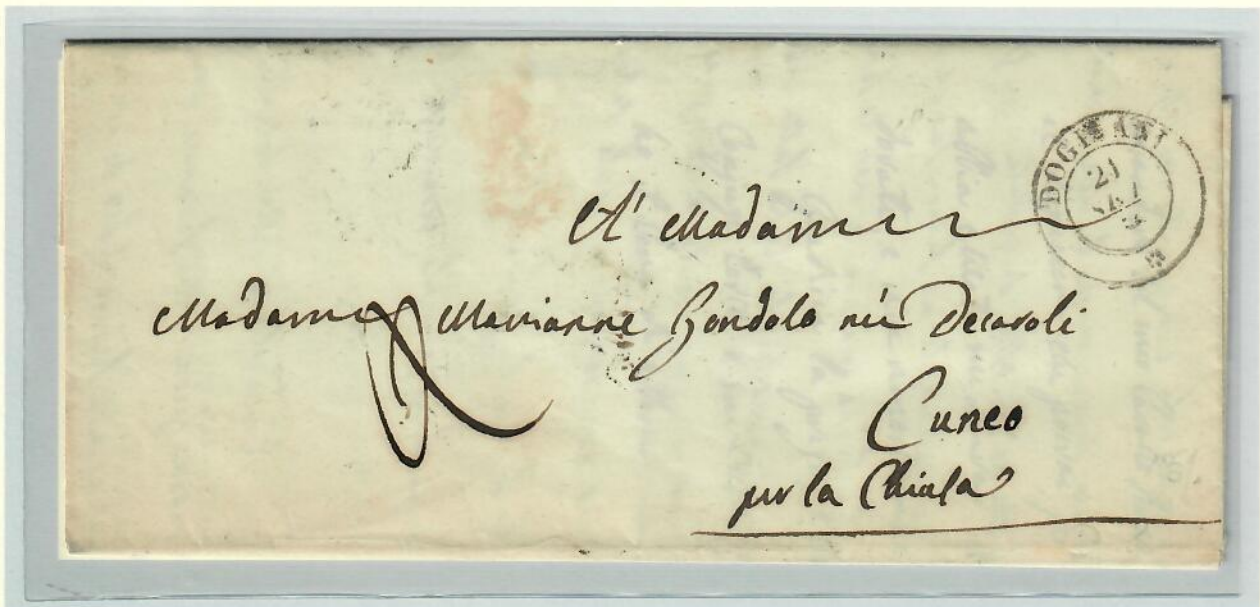 DOGLIANI
21
SET
A Madame
Madame Marianne Gondolo née Decaroli
Cuneo
per la Chiala